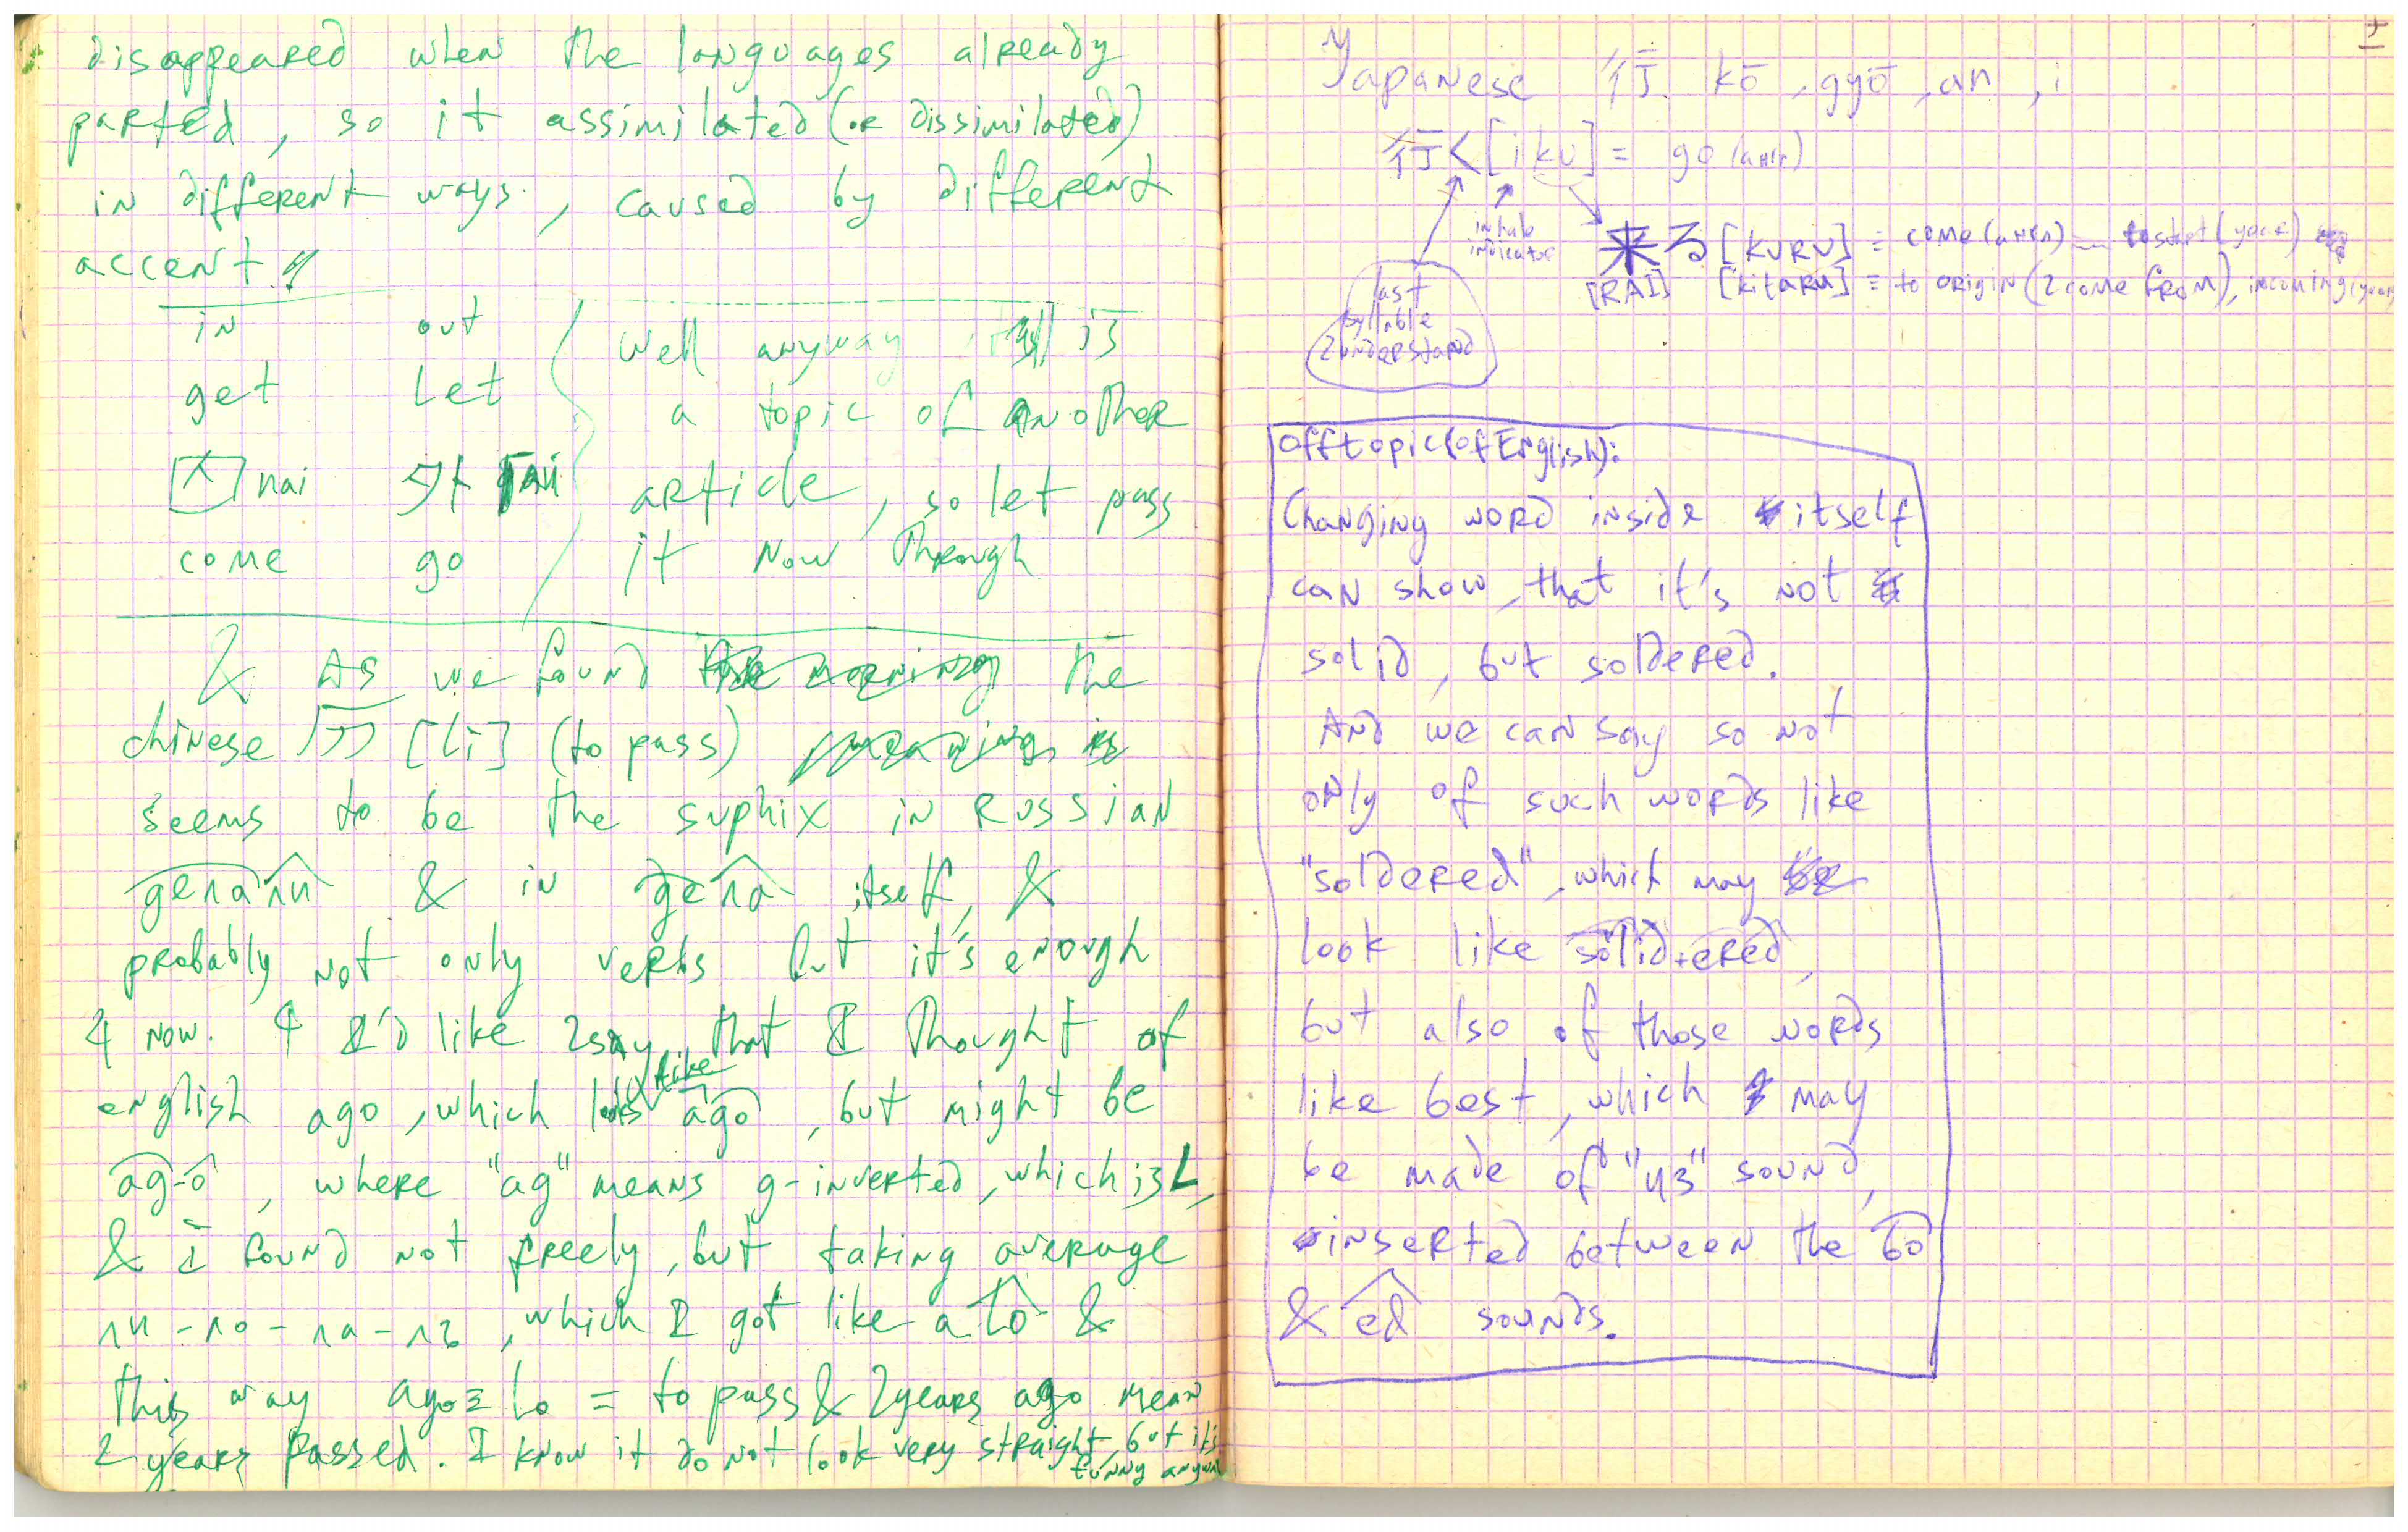 disappeared when the languages already
parted, so it assimilated (or dissimilated)
in different ways, caused by different
accent
in out
get let
内 nai 外
come go
Well anyway is
a topic of another
article, so let pass
it now through
& As we found the
chinese 历 [li] (to pass)
seems to be the suphix in Russian
делали & in дела itself, &
probably not only verbs but it's enough
4 now. & I'd like 2say that I thought of
english ago, which looks like ago, but might be
ag-o, where "ag" means g-inverted, which is L,
& I found not freely, but taking average
ли-ло-ла-ль, which I got like a Lo &
this way ago = Lo = to pass & 2years ago mean
2 years passed. I know it do not look very straight, but it's
funny anyway
Japanese 行 kō, gyō, an, i
行く [iku] = go (англ)
inhale
indicator
last
syllable
2understand
来る [KURU] = come (англ) to start (year)
[RAI] [kitaru] = to origin (2 come from), incoming (year)
Offtopic (of English):
Changing word inside itself
can show, that it's not
solid, but soldered.
And we can say so not
only of such words like
"soldered", which may
look like solid+ered,
but also of those words
like best, which may
be made of "из" sound,
inserted between the бо
& ed sounds.